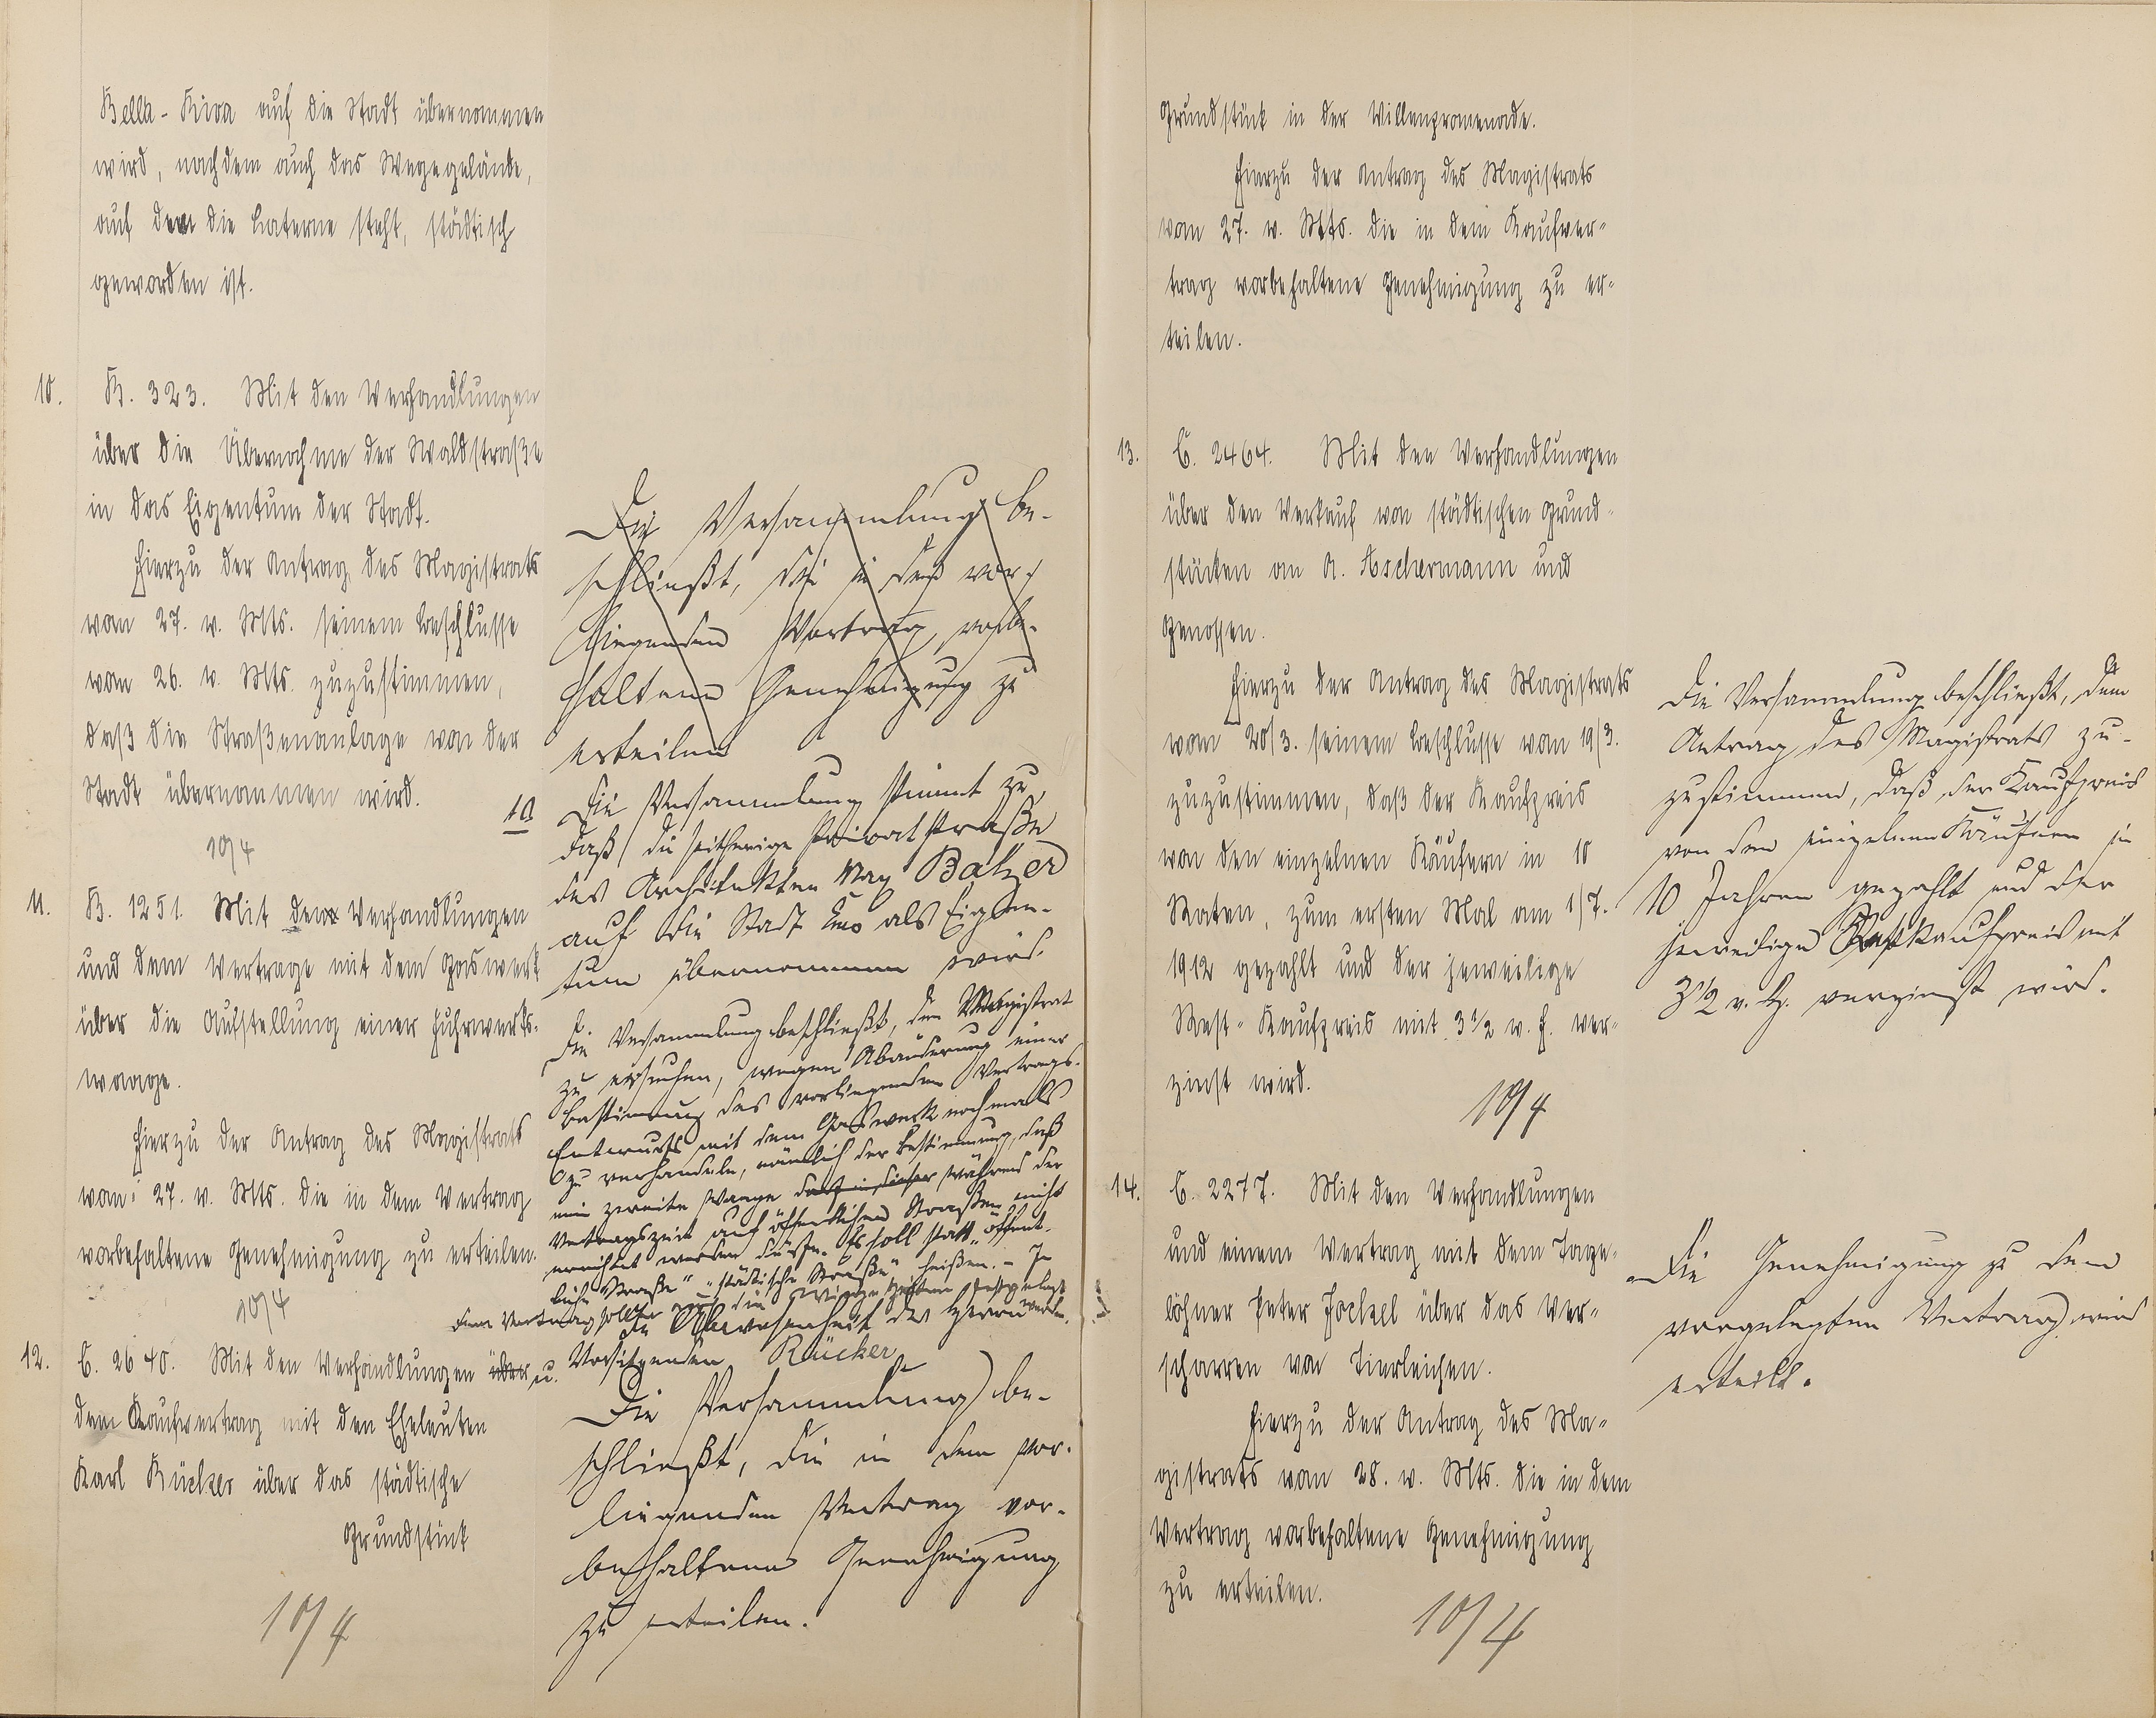 Bella-Riva auf die Stadt übernommen
wird, nachdem auch das Wegegelände,
auf dem die Laterne steht, städtisch
geworden ist.
10. B. 323. Mit den Verhandlungen
über die Übernahme der Waldstraße
in das Eigentum der Stadt.
Hierzu der Antrag des Magistrats
vom 27. v. Mts. seinem Beschlusse
vom 26. v. Mts. zuzustimmen,
daß die Straßenanlage von der
Stadt übernommen wird.
10/4
11. B. 1251. Mit den Verhandlungen
und dem Vertrage mit dem Gaswerk
über die Aufstellung einer Fuhrwerks-
waage.
Hierzu der Antrag des Magistrats
vom 27. v. Mts. die in dem Vertrag
vorbehaltene Genehmigung zu erteilen.
10/4
12. C. 2640. Mit den Verhandlungen über u.
dem Kaufvertrag mit den Eheleuten
Karl Rücker über das städtische
Grundstück
10/4
Die Versammlung be-
schließt, die in dem vor-
liegenden Vertrag vorbe-
haltene Genehmigung zu
erteilen
10 Die Versammlung stimmt zu,
daß die seitherige Privatstraße
des Architekten Max Balzer
auf die Stadt als Eigen-
tum übernommen wird.
Die Versammlung beschließt, den Magistrat
zu ersuchen, wegen Abänderung einer
Bestimmung des vorliegenden Vertrags-
Entwurfs mit dem Gaswerk nochmals
zu verhandeln, nämlich der Bestimmung, daß
eine zweite Waage während der
Vertragszeit auf öffentlichen Straßen nicht
errichtet werden dürfe. Es soll statt „öffent-
liche Straße" „städtische Straße" heißen. - In
dem Vertrag sollen auch die festgelegt
werden.
In Abwesenheit des Herrn
Vorsitzenden Rücker
Die Versammlung be-
schließt, die in dem vor-
liegenden Vertrag vor-
behaltene Genehmigung
zu erteilen.
Grundstück in der Villenpromenade.
Hierzu der Antrag des Magistrats
vom 27. v. Mts. die in dem Kaufver-
trag vorbehaltene Genehmigung zu er-
teilen.
13. C. 2464. Mit den Verhandlungen
über den Verkauf von städtischen Grund-
stücken an A. Aschermann und
Genossen.
Hierzu der Antrag des Magistrats
vom 20/3. seinem Beschlusse vom 19/3.
zuzustimmen, daß der Kaufpreis
von den einzelnen Käufern in 10
Raten, zum ersten Mal am 1/7.
1912 gezahlt und der jeweilige
Rest-Kaufpreis mit 3½ v. H. ver-
zinst wird.
10/4
14. C. 2277. Mit den Verhandlungen
und einem Vertrag mit dem Tage-
löhner Peter Jockel über das Ver-
scharren von Tierleichen.
Hierzu der Antrag des Ma-
gistrats vom 28. v. Mts. die in dem
Vertrag vorbehaltene Genehmigung
zu erteilen.
10/4
Die Versammlung beschließt, dem
Antrag des Magistrats zu-
zustimmen, daß der Kaufpreis
von den einzelnen Käufern in
10 Jahren gezahlt und der
jeweilige Restkaufpreis mit
3½ v. H. verzinst wird.
Die Genehmigung zu dem
vorgelegten Vertrag wird
erteilt.